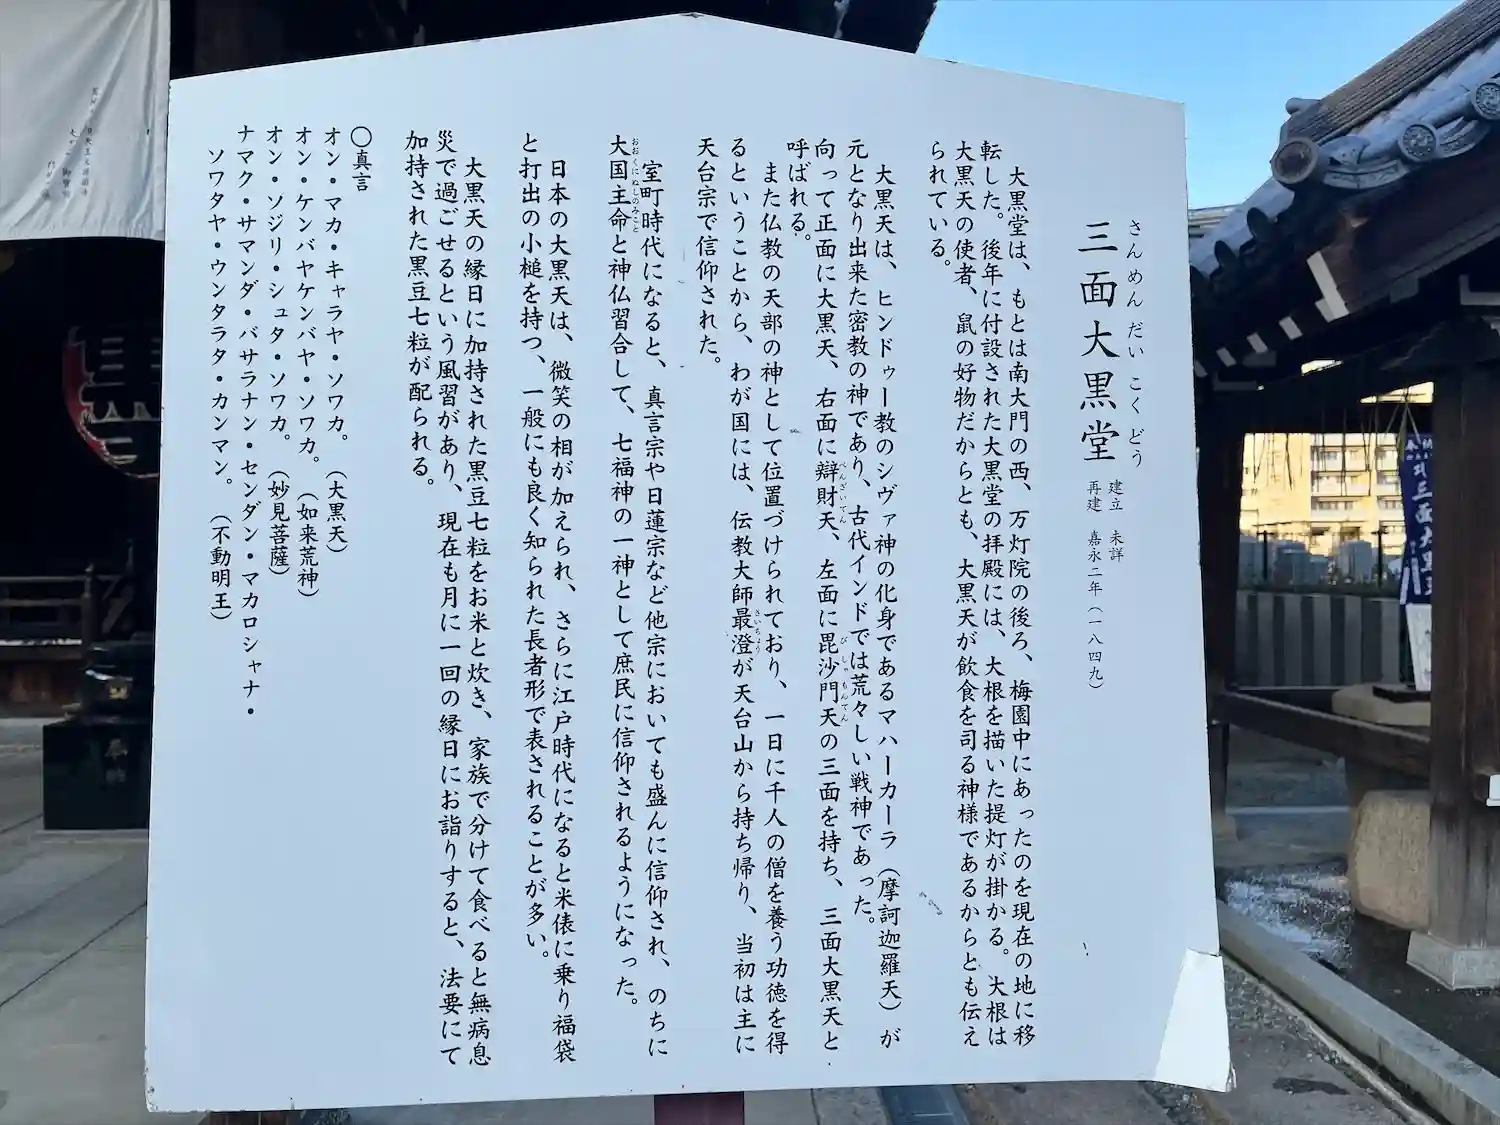 さんめんだいこくどう
三面大黒堂
建立　未詳
再建　嘉永二年（一八四九）
大黒堂は、もとは南大門の西、万灯院の後ろ、梅園中にあったのを現在の地に移
転した。後年に付設された大黒堂の拝殿には、大根を描いた提灯が掛かる。大根は
大黒天の使者、鼠の好物だからとも、大黒天が飲食を司る神様であるからとも伝え
られている。
大黒天は、ヒンドゥー教のシヴァ神の化身であるマハーカーラ（摩訶迦羅天）が
元となり出来た密教の神であり、古代インドでは荒々しい戦神であった。
向って正面に大黒天、右面に辯財天、左面に毘沙門天の三面を持ち、三面大黒天と
べんざいてん
びしゃもんてん
呼ばれる。
また仏教の天部の神として位置づけられており、一日に千人の僧を養う功徳を得
るということから、わが国には、伝教大師最澄が天台山から持ち帰り、当初は主に
さいちょう
天台宗で信仰された。
室町時代になると、真言宗や日蓮宗など他宗においても盛んに信仰され、のちに
大国主命と神仏習合して、七福神の一神として庶民に信仰されるようになった。
おおくにぬしのみこと
日本の大黒天は、微笑の相が加えられ、さらに江戸時代になると米俵に乗り福袋
と打出の小槌を持つ、一般にも良く知られた長者形で表されることが多い。
大黒天の縁日に加持された黒豆七粒をお米と炊き、家族で分けて食べると無病息
災で過ごせるという風習があり、現在も月に一回の縁日にお詣りすると、法要にて
加持された黒豆七粒が配られる。
〇真言
オン・マカ・キャラヤ・ソワカ。（大黒天）
オン・ケンバヤケンバヤ・ソワカ。（如来荒神）
オン・ソジリ・シュタ・ソワカ。（妙見菩薩）
ナマク・サマンダ・バサラナン・センダン・マカロシャナ・
ソワタヤ・ウンタラタ・カンマン。（不動明王）
三面大黒